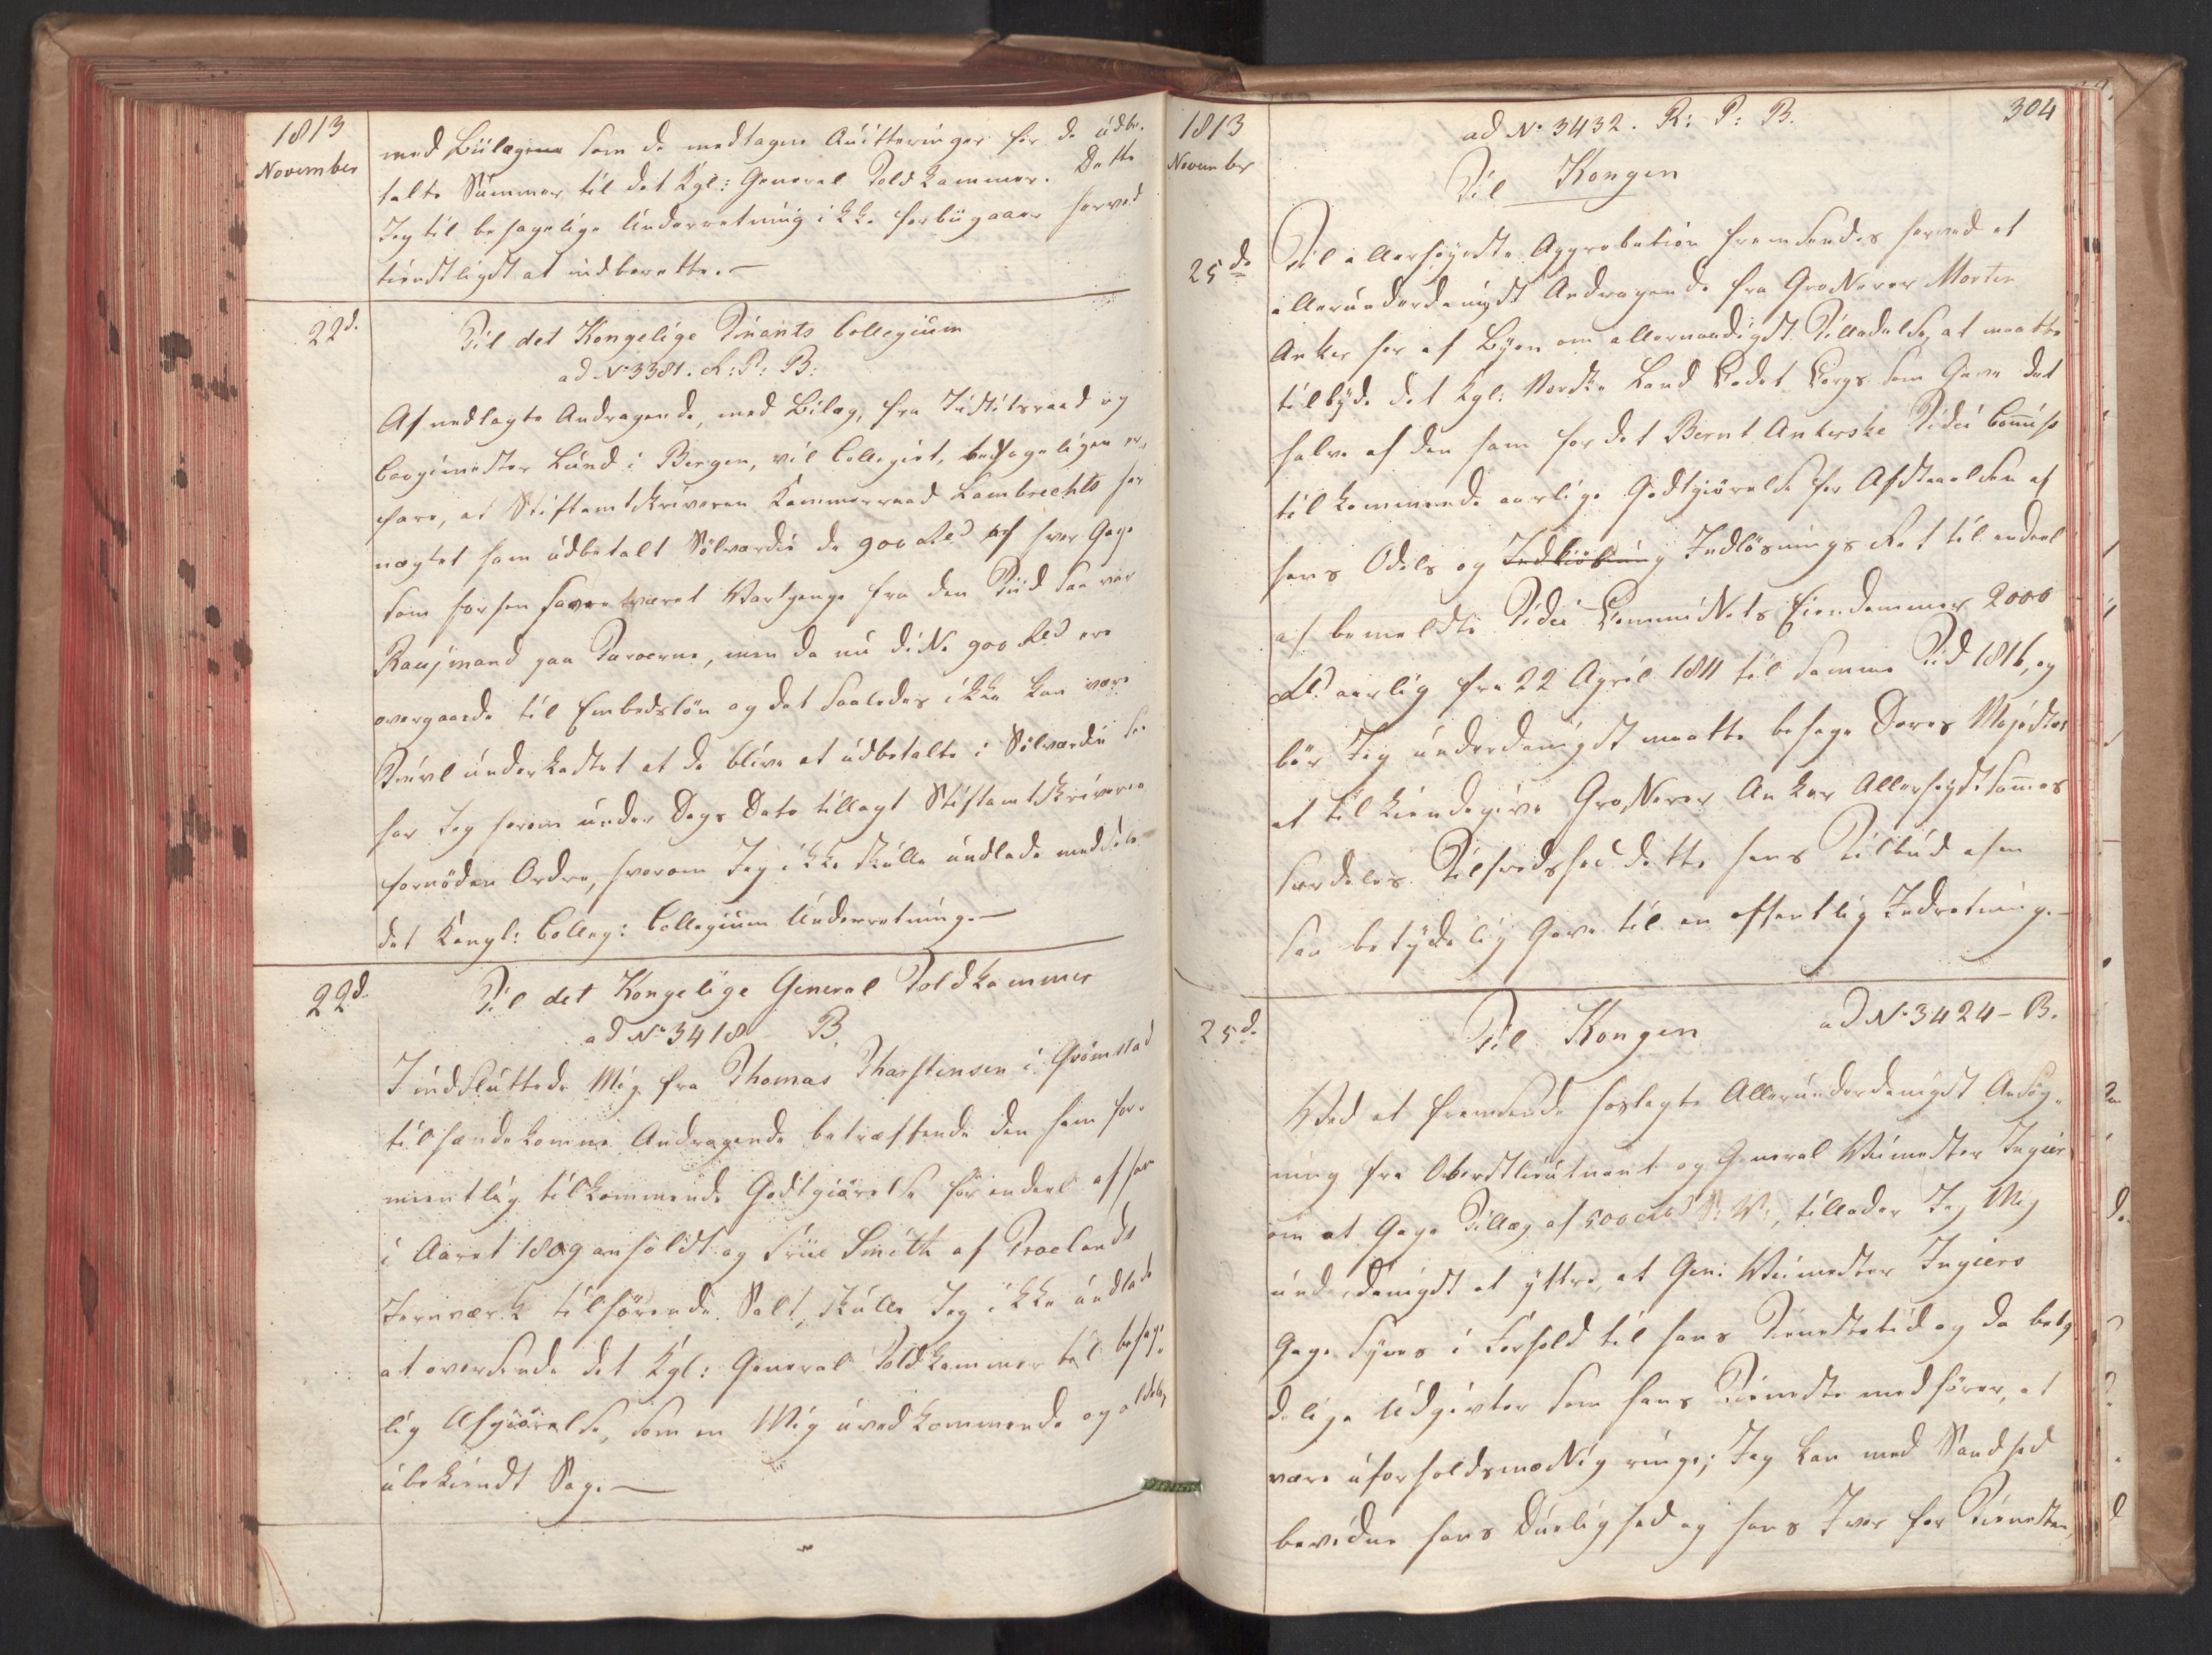 1813
November
med Bülagene som de modtagne Qvitteringer for de udbe-
talte Summer til det Kgl: General Told Kammer. Dette
Jeg til behagelige Underretning ikke forbügaaer herved
tienstligst at indberette.—
22d.
Til det Kongelige Finants Collegium
ad No 3381. R: P: B:
Af nedlagte Andragende, med Bilag, fra Justitsraad og
Borgemester Lund i Bergen, vil Collegiet, behageligen er-
fare, at Stiftamtskriveren Kammerraad Lambrechts har
nægtet ham udbetalt Sölvværdie de 900 Rd af hver Gage
som forhen have været Vartpenge fra den Tiid han var
paa Færoerne, men da nu disse 900 Rd ere
overgaaede til Embedslön og det saaledes ikke kan være
Tvivl underkastet at de blive at udbetalte i Sölvværdie saa
har Jeg herom under Dags Dato tillagt Stiftamtskriveren
fornöden Ordre, hvorom Jeg ikke skulle undlade meddele
det Kongl: Colleg: Collegium Underretning.—
22d.
Til det Kongelige General Toldkammer
ad No 3418 B.
I indsluttede Mig fra Thomas Tharstensen i Grömstad
tilhændekomne Andragende betræffende den ham for-
mentlig tilkommende Godtgiörelse for endeel af ham
i Aaret 1809 anholdt og Frue Smith af Froelands
Jernværk tilhörende Salt, skulle Jeg ikke undlade
at oversende det Kgl: General Toldkammer til behage-
lig Afgiörelse, som en Mig uvedkommende og aldeles
ubekiendt Sag.—
1813
November
304
ad No 3432. R: P: B.
Til Kongen
25de
Til allerhöyeste Approbation fremsendes herved et
allerunderdanigst Andragende fra Grosserer Morten
Anker her af Byen om allernaadigst Tilladelse, at maatte
tilbyde det Kgl: Norske Land Cadet Corps som Gave det
halve af den ham for det Bernt Ankerske Fidei Commiss
tilkommende aarlige Godtgiörelse for Afstaaelsen af
hans Odels og Indkiöbning Indlösnings Ret til endeel
af bemeldte Fidei Commissets Eiendommer 2000
Rd aarlig fra 22 April 1811 til samme Tid 1816, og
bör Jeg underdanigst maatte behage Deres Majestet
at tilkiendegive Grosserer Anker Allerhöystsammes
særdeles Tilfredshed dette hans Tilbud af en
saa betydelig Gave til en offentlig Indretning.—
25d.
Til Kongen
ad No 3424 - B.
Ved at fremsende hoslagte Allerunderdanigst Ansög-
ning fra Oberstlieutnant og General Veimester Ingier
om at Gage Tillæg af 500 Rd S: V:, tillader Jeg Mig
underdanigst at yttre, at Gen: Veimester Ingiers
Gage synes i Forhold til hans Tienestetid og de bety-
delige Udgivter som hans Tieneste medförer, at
være uforholdsmæssig ringe; Jeg kan med Sandhed
bevidne hans Duelighed og hans Iver for Tienesten,